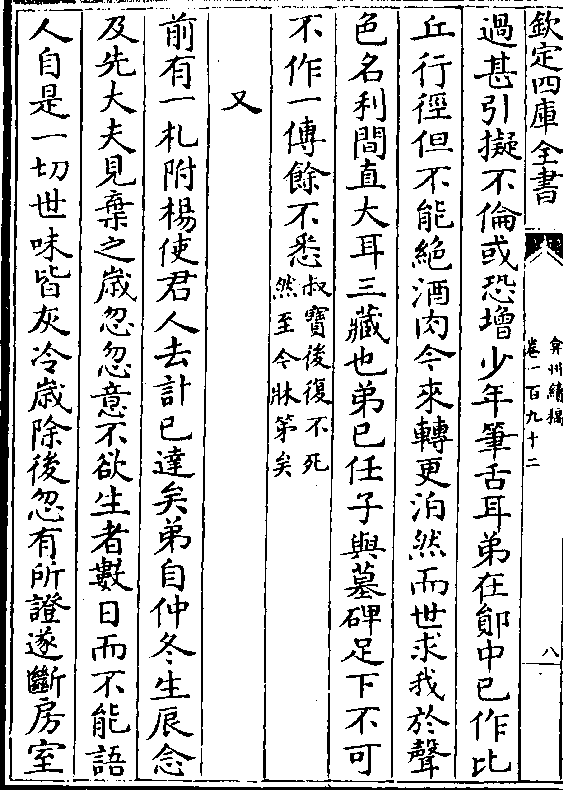 欽定四庫全書
弇州續稿
卷一百九十二
八
過甚引擬不倫或恐增少年筆舌耳弟在鄖中已作比
丘行徑但不能絶酒肉今來轉更泊然而世求我於聲
色名利間直大耳三藏也弟已任子與墓碑足下不可
不作一傳餘不悉叔寶後復不死
然至今牀第矣
又
前有一札附楊使君人去計已達矣弟自仲冬生辰念
及先大夫見棄之歳忽忽意不欲生者數日而不能語
人自是一切世味皆灰冷歳除後忽有所證遂斷房室